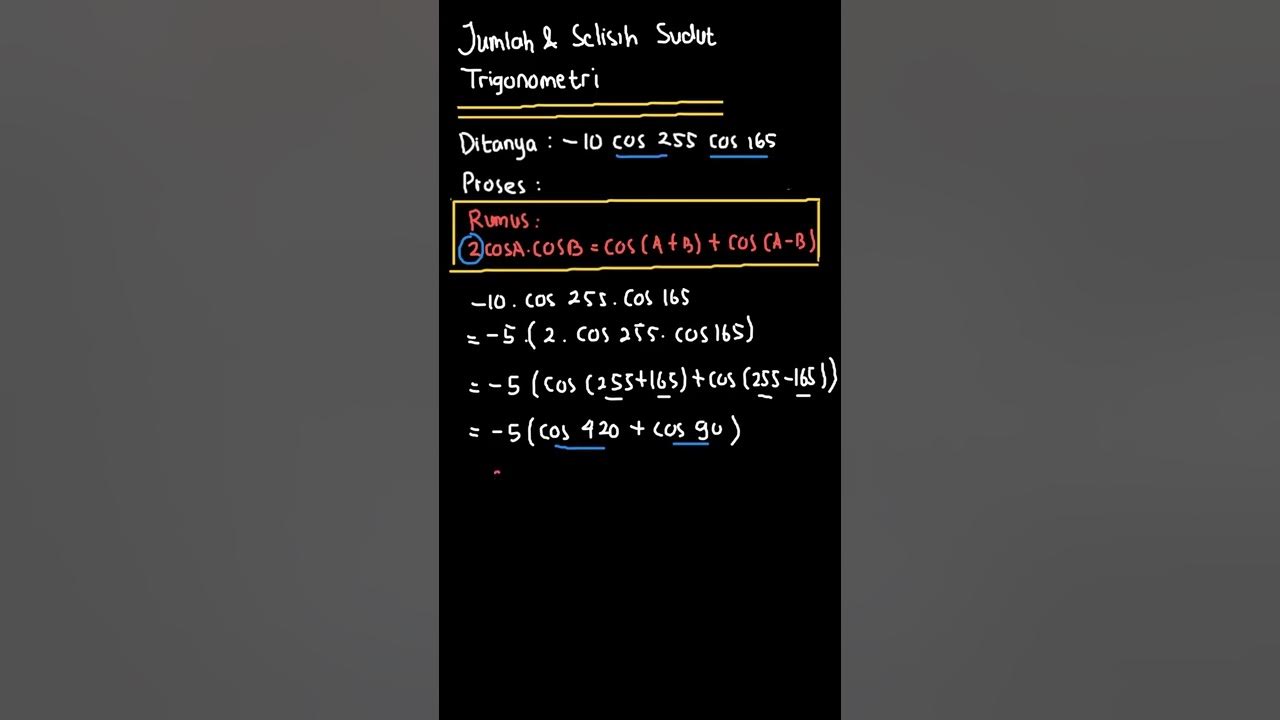 Jumlah & Selisih Sudut
Trigonometri
Ditanya : -10 cos 255 cos 165
Proses :
Rumus :
2 cosA.cosB = cos (A+B) + cos (A-B)
-10 . cos 255 . cos 165
= -5 . (2 . cos 255 . cos 165)
= -5 (cos (255+165) + cos (255-165))
= -5 (cos 420 + cos 90)